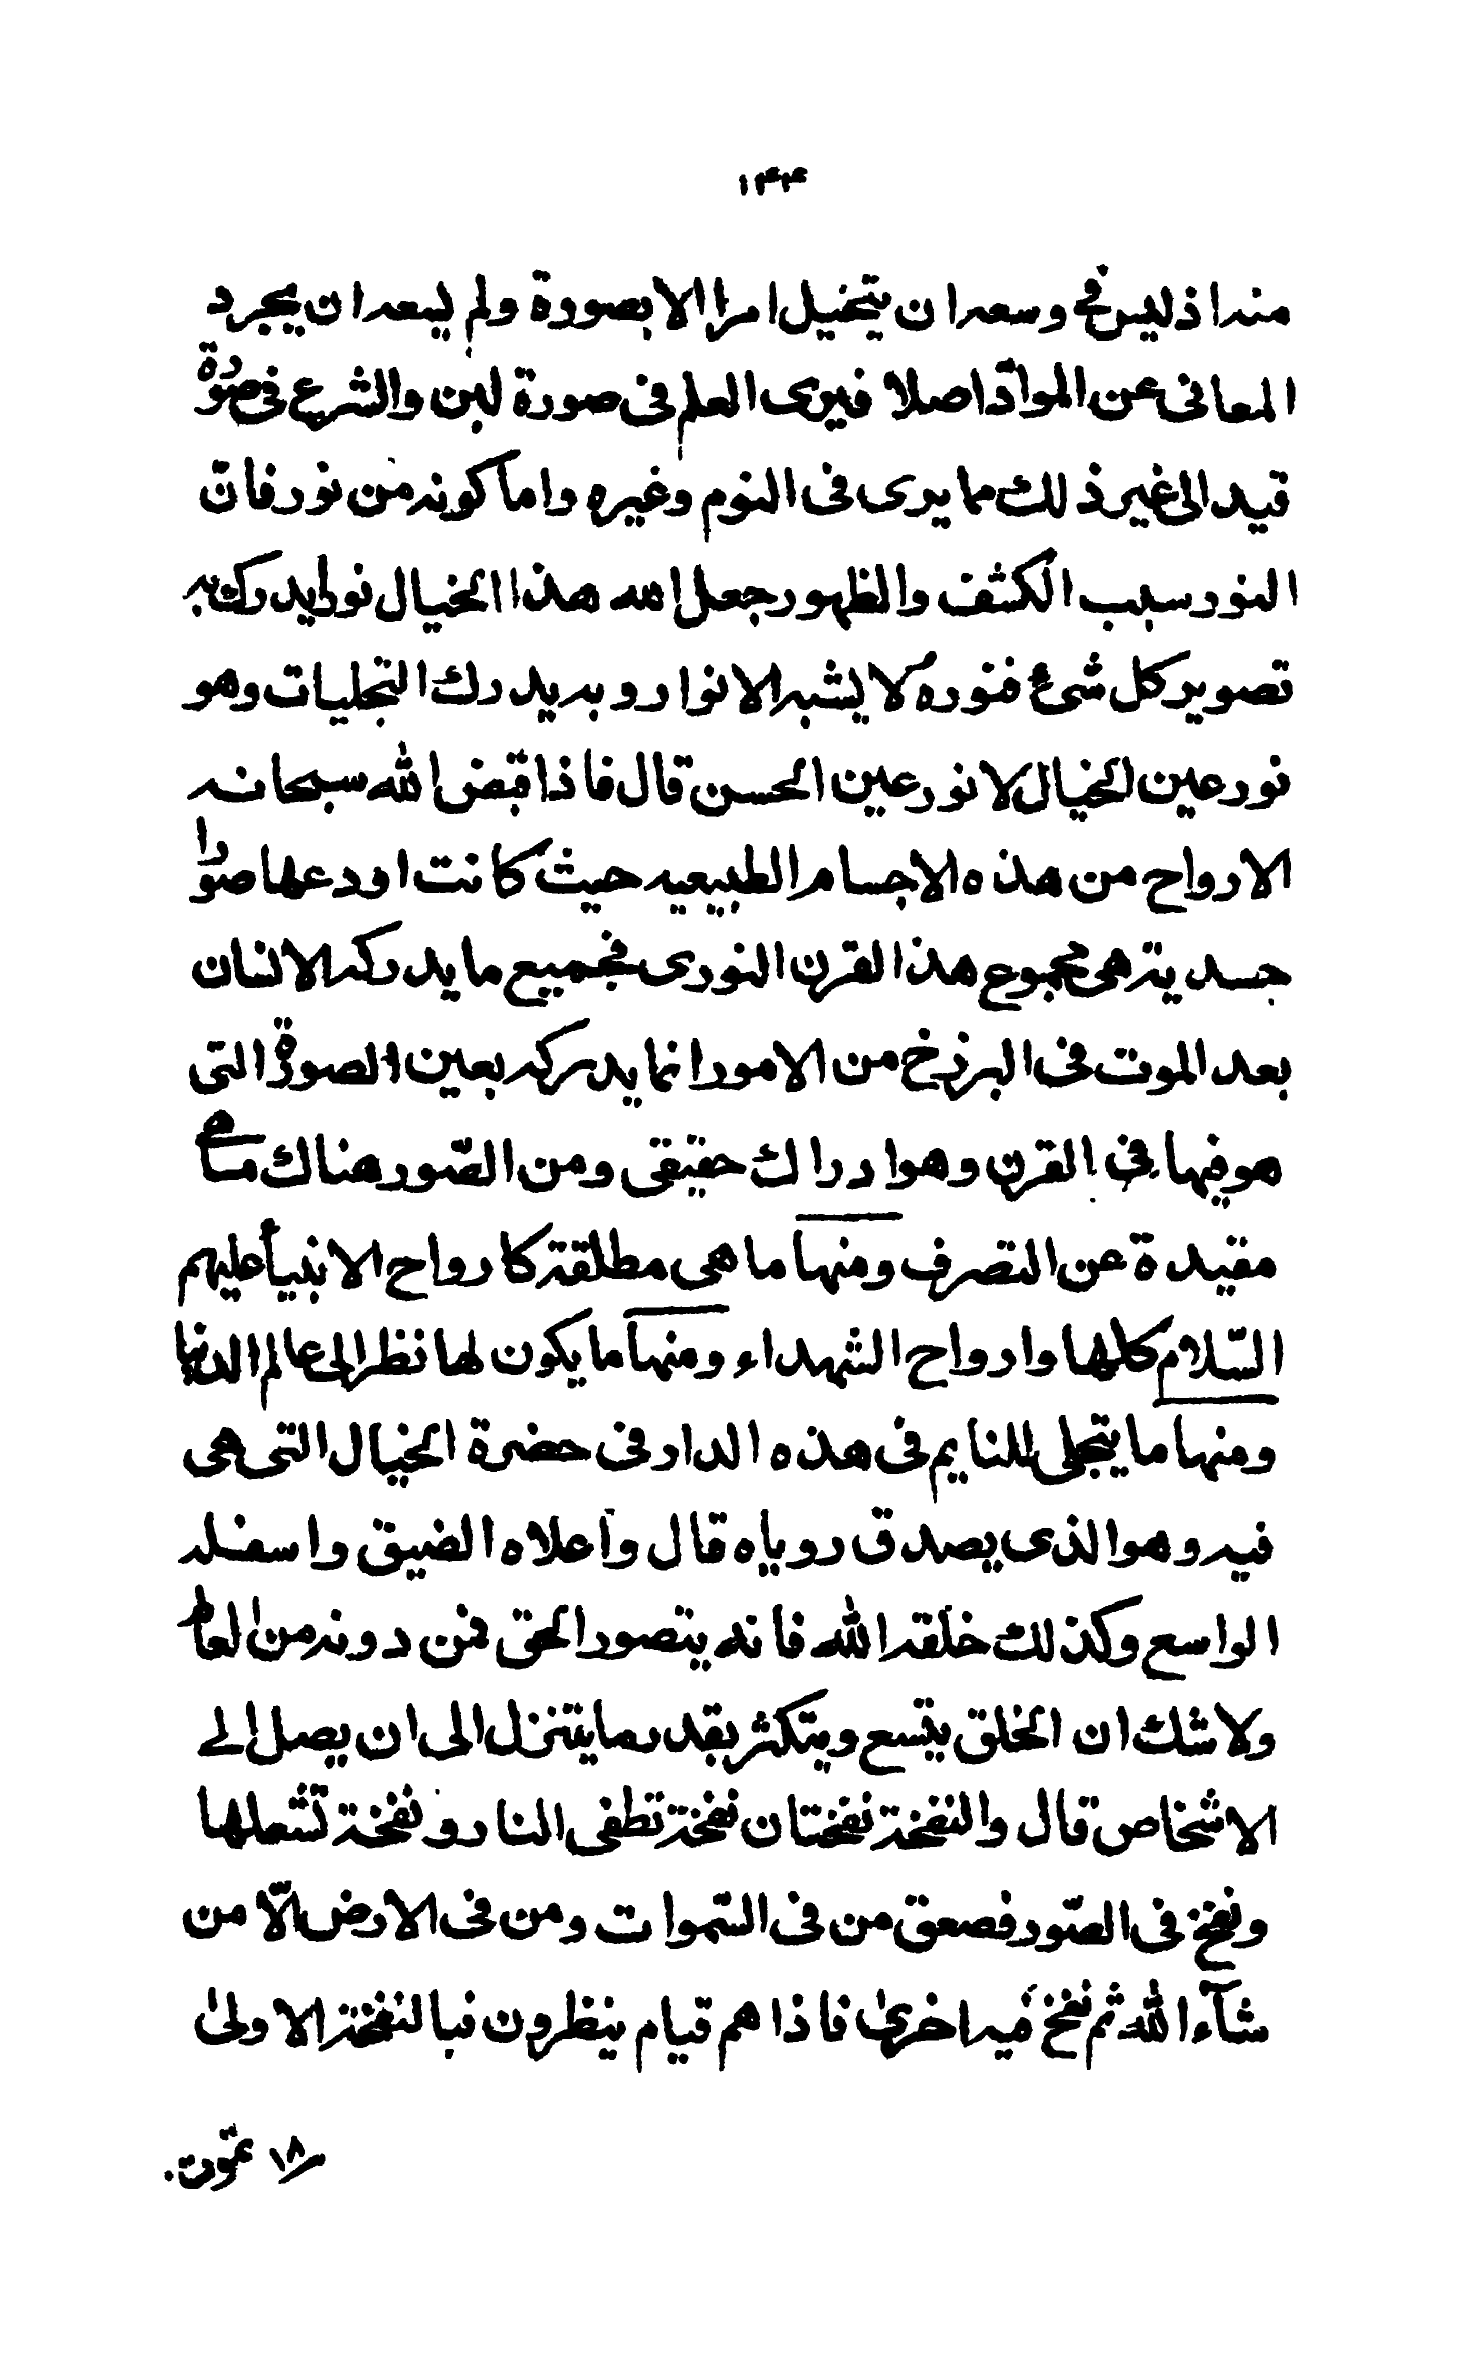 ١٤٤
منه اذ ليس في وسعه ان يتخيل امرا الا بصورة ولم يسعه ان يجرد
المعانى عن الموادّ اصلا فيرى العلم فى صورة لبن والشرع فى صورة
قيد الى غير ذلك مما يرى فى النوم وغيره واما كونه من نور فان
النور سبب الكشف والظهور جعل الله هذا الخيال نورا يدرك به
تصوير كل شئ فنوره لا يشبه الانوار وبه يدرك التجليات وهو
نور عين الخيال لا نور عين الحسن قال فاذا قبض الله سبحانه
الارواح من هذه الاجسام الطبيعيه حيث كانت اودعها صورا
جسدية هى مجموع هذا القرن النورى فجميع ما يدركه الانسان
بعد الموت فى البرزخ من الامور انما يدركه بعين الصورة التى
هو فيها فى القرن وهو ادراك حقيقى ومن الصّور هناك ما هى
مقيدة عن التصرف ومنها ما هى مطلقة كارواح الانبيآ عليهم
السّلام كلها وارواح الشهداء ومنها ما يكون لها نظر الى عالم الدنيا
ومنها ما يتجلى للنايم فى هذه الدار فى حضرة الخيال التى هى
فيه وهو الذى يصدق روياه قال واعلاه الضيق واسفله
الواسع وكذلك خلقه الله فانه يتصور الحق فمن دونه من العالم
ولا شك ان الخلق يتسع ويتكثر بقدر ما يتنزل الى ان يصل الے
الاشخاص قال والنفخة نفختان نفخة تطفى النار ونفخة تشعلها
ونفخ فى الصّور فصعق من فى السّموات ومن فى الارض الّا من
شآء الله ثم نفخ فيه اخرىٰ فاذا هم قيام ينظرون فبالنفخة الاولىٰ
١٨ تموت.